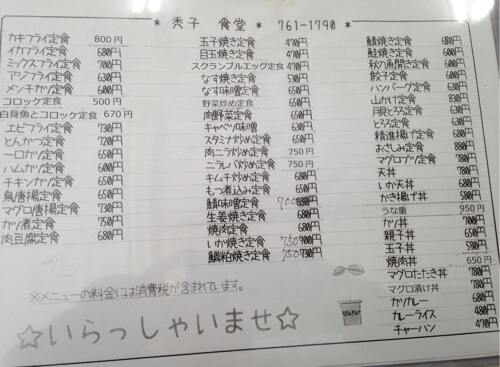 * 秀子 食堂 * 761-1790 *
カキフライ定食 800円
イカフライ定食 680円
ミックスフライ定食 700円
アジフライ定食 630円
メンチカツ定食 600円
コロッケ定食 500円
白身魚とコロッケ定食 670円
エビフライ定食 730円
とんかつ定食 720円
一口カツ定食 680円
ハムカツ定食 600円
チキンカツ定食 680円
鳥唐揚定食
マグロ唐揚定食 730円
カツ煮定食
肉豆腐定食 680円
玉子焼き定食 470円
目玉焼き定食 470円
スクランブルエッグ定食 470円
なす焼き定食 530円
なす味噌定食 650円
野菜炒め定食
肉野菜定食
キャベツ味噌 630円
スタミナ炒め定食
肉ニラ炒め定食 750円
ニラレバ炒め定食 750円
キムチ炒め定食 680円
もつ煮込み定食
鯖味噌定食 700
生姜焼き定食 680円
焼肉定食 680円
いか焼き定食 750
鯛粕焼き定食 750
鯖焼き定食 680円
鮭焼き定食
秋刀魚開き定食
餃子定食
ハンバーグ定食 630円
山かけ定食 830円
月見とろろ定食 630円
とろろ定食
精進揚げ定食 680円
おさしみ定食
マグロブツ定食
天丼
いか天丼 680円
かき揚げ丼
うな重 950円
カツ丼 700円
親子丼 650円
玉子丼 580円
焼肉丼 650円
マグロたたき丼
マグロ漬け丼
カツカレー 680円
カレーライス 480円
チャーハン 470円
※メニューの料金には消費税が含まれています。
☆いらっしゃいませ☆